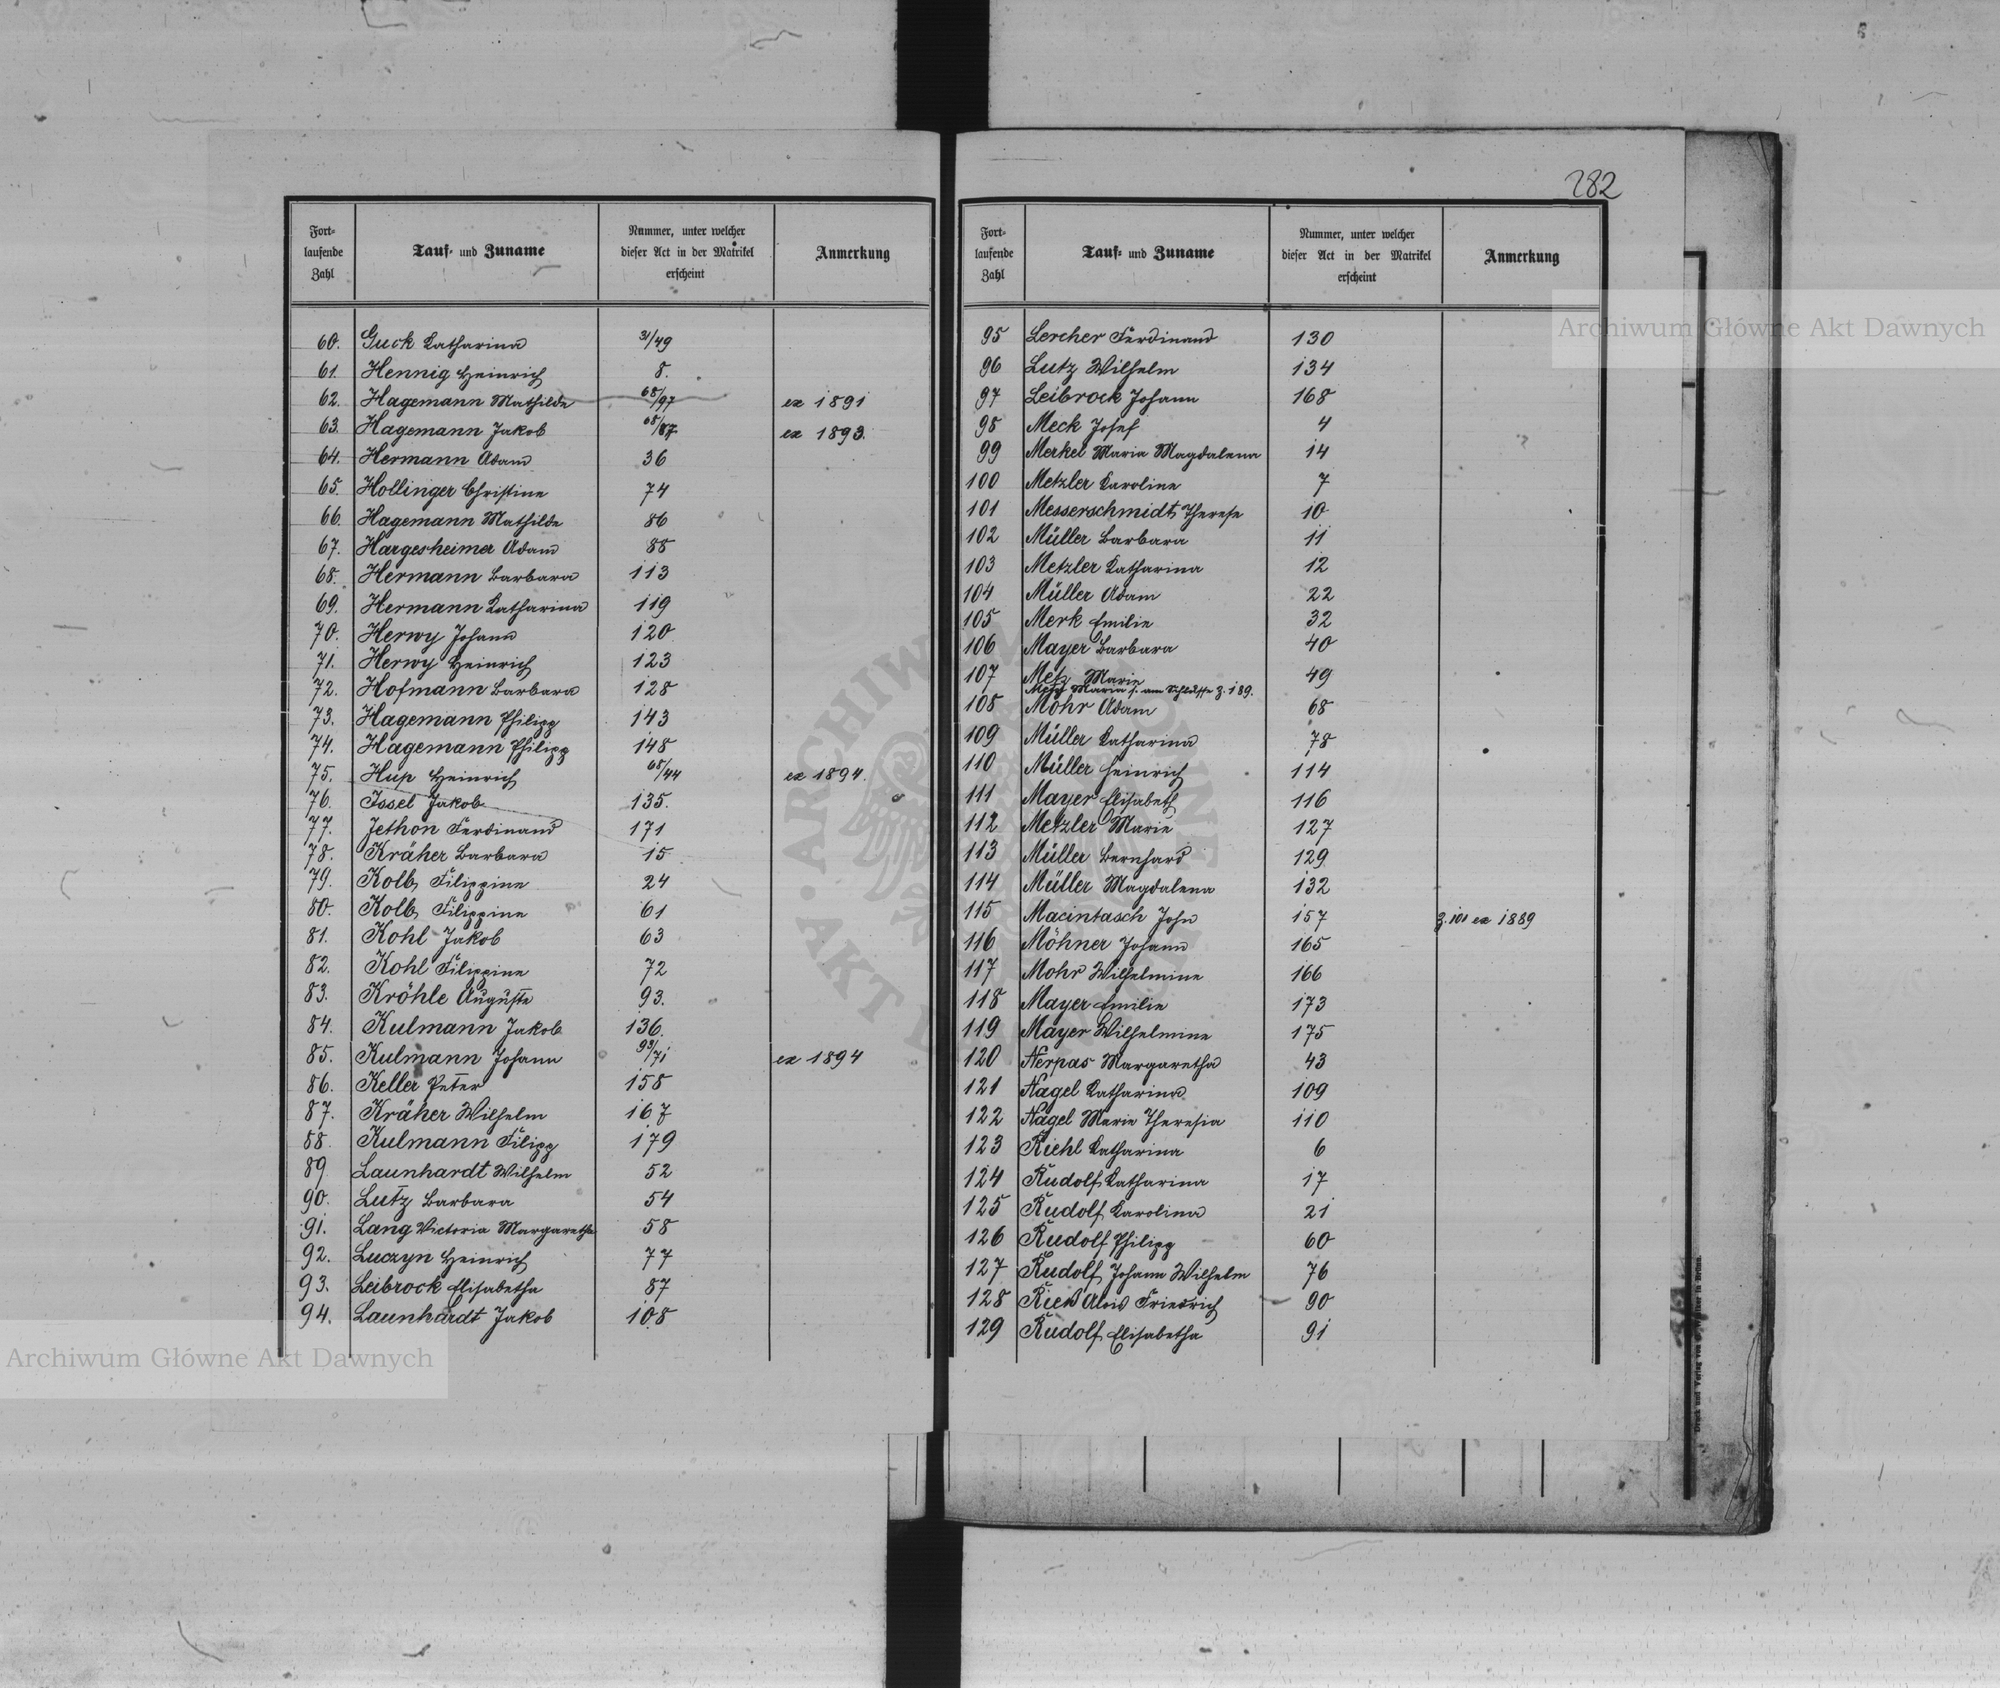 282
Fort-
laufende
Zahl
Tauf- und Zuname
Nummer, unter welcher
dieser Act in der Matrikel
erscheint
Anmerkung
60. Guck Katharina 3/49
61. Hennig Heinrich 8.
62. Hagemann Mathilde 68/97 ex 1891
63. Hagemann Jakob 68/87 ex 1893.
64. Hermann Adam 36
65. Hollinger Christine 74
66. Hagemann Mathilde 86
67. Hargesheimer Adam 88
68. Hermann Barbara 113
69. Hermann Katharina 119
70. Herwy Johann 120
71. Herwy Heinrich 123
72. Hofmann Barbara 128
73. Hagemann Philipp 143
74. Hagemann Philipp 148
75. Hup Heinrich 68/44 ex 1894.
76. Issel Jakob 135.
77. Jethon Ferdinand 171
78. Kräher Barbara 15
79. Kolb Filippine 24
80. Kolb Filippine 61
81. Kohl Jakob 63
82. Kohl Filippine 72
83. Kröhle Auguste 93.
84. Kulmann Jakob 136.
85. Kulmann Johann 93/71 ex 1894
86. Keller Peter 158
87. Kräher Wilhelm 167
88. Kulmann Filipp 179
89 Launhardt Wilhelm 52
90. Lutz Barbara 54
91. Lang Victoria Margaretha 58
92. Luczyn Heinrich 77
93. Leibrock Elisabetha 87
94. Launhardt Jakob 108
Fort-
laufende
Zahl
Tauf- und Zuname
Nummer, unter welcher
dieser Act in der Matrikel
erscheint
Anmerkung
95 Lercher Ferdinand 130
96 Lutz Wilhelm 134
97 Leibrock Johann 168
98 Meck Josef 4
99 Merkel Maria Magdalena 14
100 Metzler Karoline 7
101 Messerschmidt Therese 10
102 Müller Barbara 11
103 Metzler Katharina 12
104 Müller Adam 22
105 Merk Emilie 32
106 Mayer Barbara 40
107 Metz Marie 49
Metz Maria s. am Schlusse Z. 189.
108 Mohr Adam 68
109 Müller Katharina 78
110 Müller Heinrich 114
111 Mayer Elisabeth 116
112 Metzler Marie 127
113 Müller Bernhard 129
114 Müller Magdalena 132
115 Macintasch John 157 Z. 101 ex 1889
116 Möhner Johann 165
117 Mohr Wilhelmine 166
118 Mayer Emilie 173
119 Mayer Wilhelmine 175
120 Nerpas Margaretha 43
121 Nagel Katharina 109
122 Nagel Marie Theresia 110
123 Riehl Katharina 6
124 Rudolf Katharina 17
125 Rudolf Karolina 21
126 Rudolf Philipp 60
127 Rudolf Johann Wilhelm 76
128 Rieß Alois Friedrich 90
129 Rudolf Elisabetha 91
Archiwum Główne Akt Dawnych
Archiwum Główne Akt Dawnych